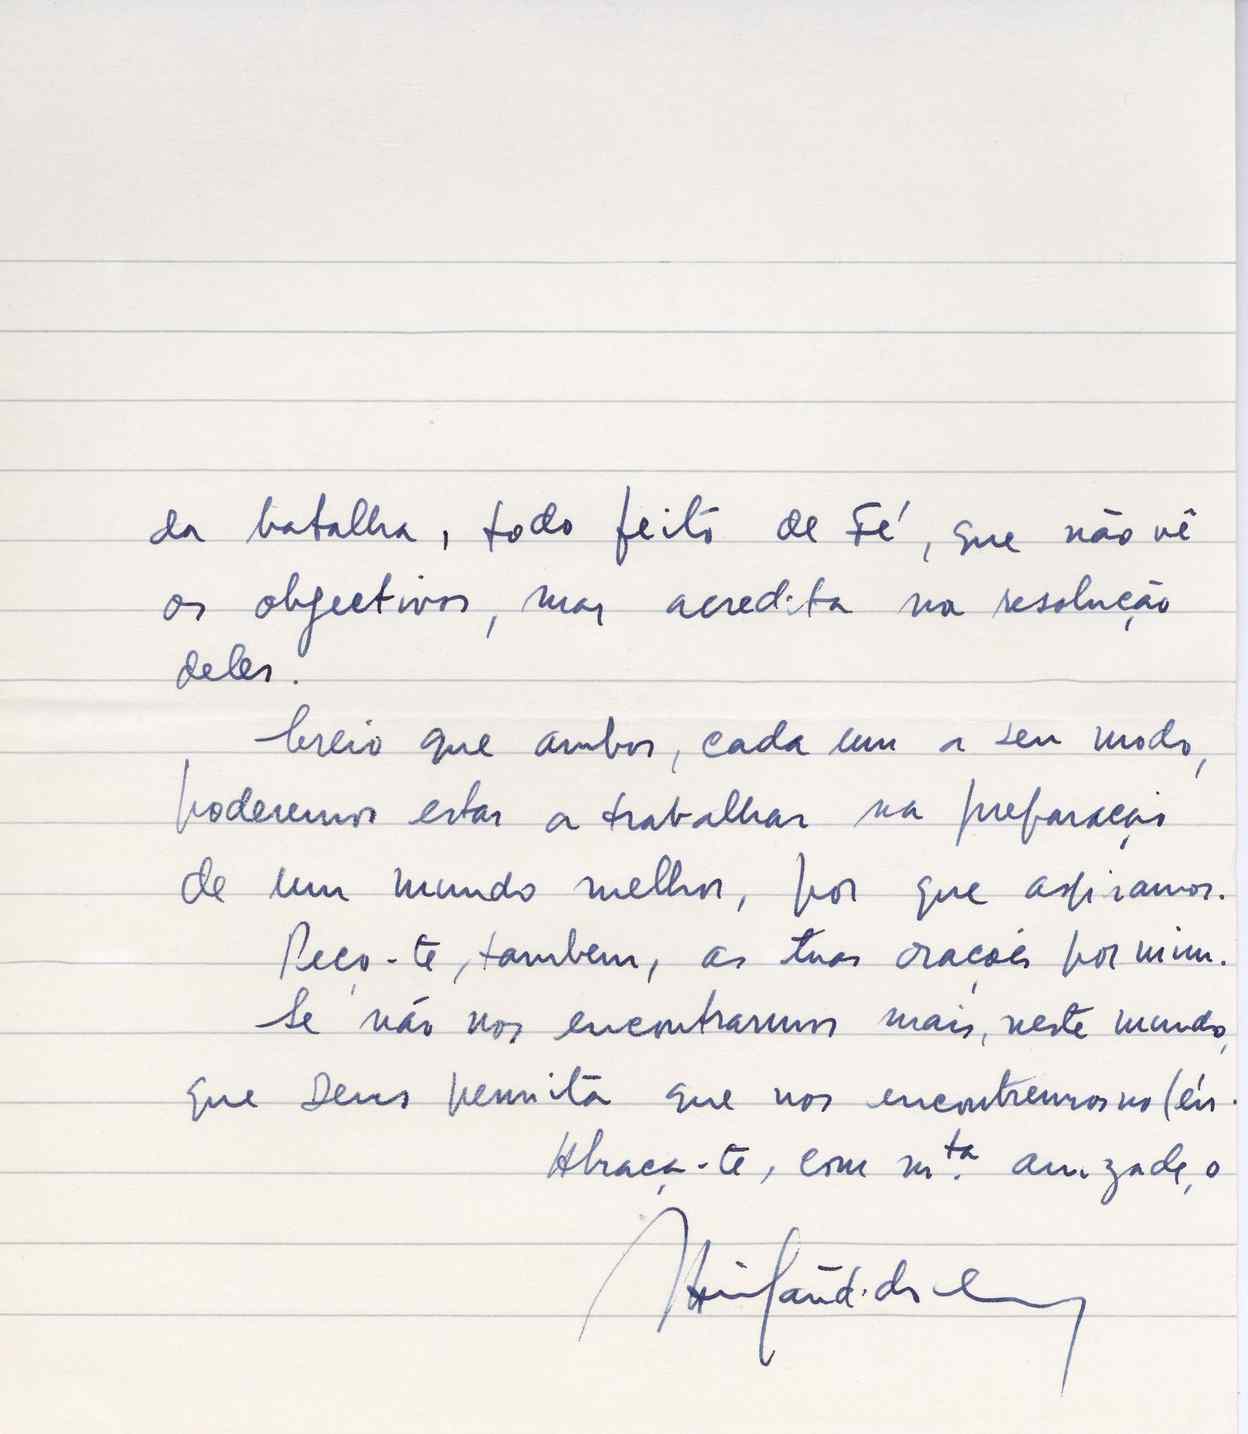 da batalha, todo feito de Fé, que não vê
os objectivos, mas acredita na resolução
deles.
Creio que ambos, cada um a seu modo,
poderemos estar a trabalhar na preparação
de um mundo melhor, por que aspiramos.
Peço-te, tambem, as tuas orações por mim.
Se não nos encontrarmos mais, neste mundo,
que Deus permita que nos encontremos no Céu.
Abraça-te, com m.ta amizade, o
Cândido